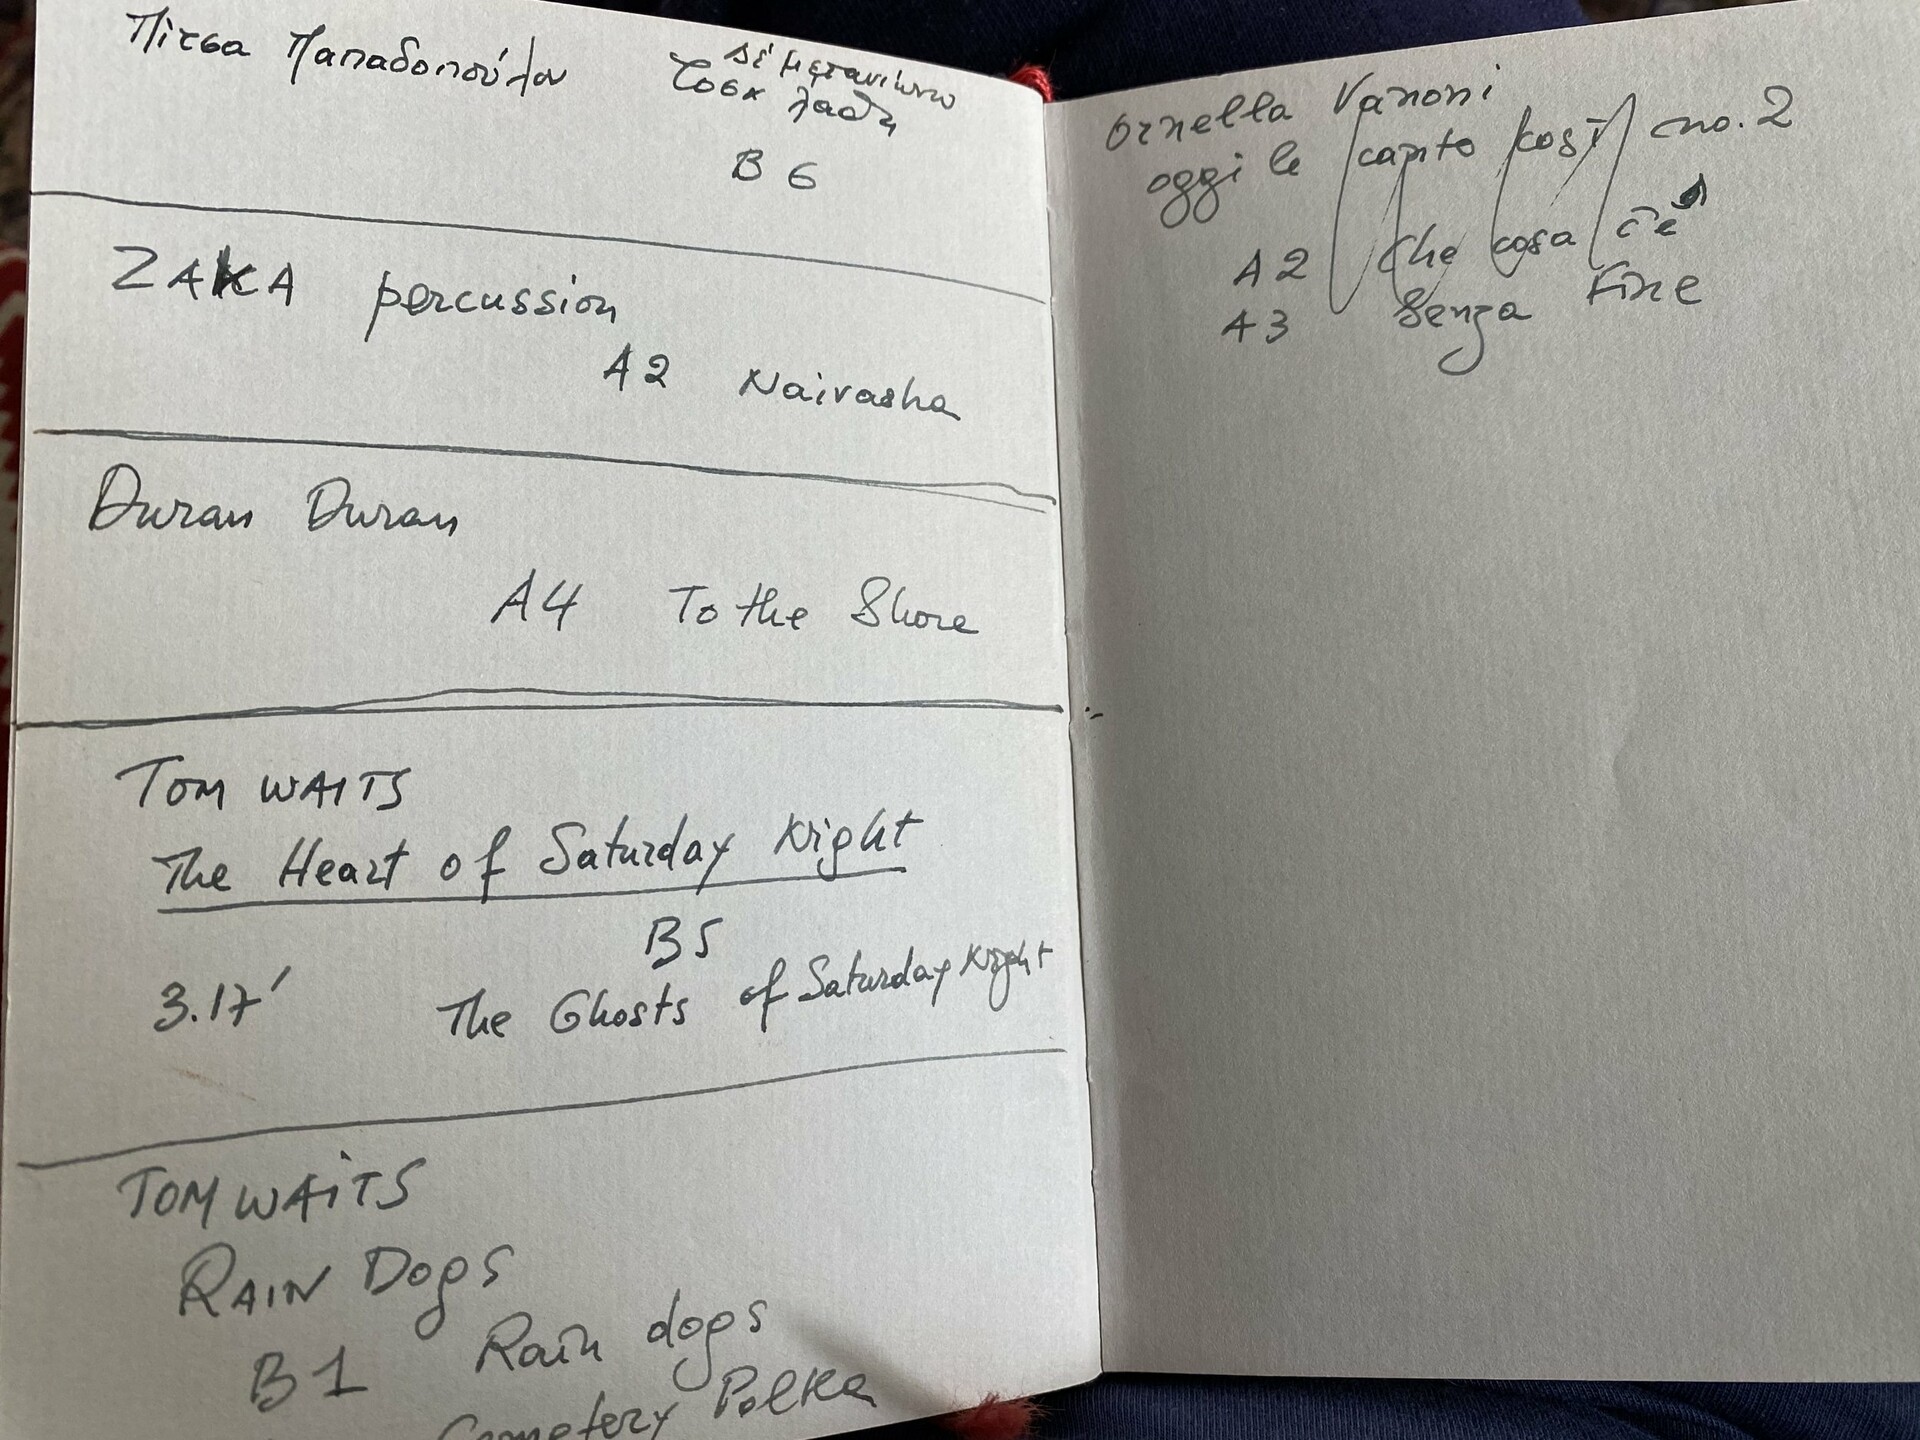 Πίτσα Παπαδοπούλου
Δέ μετανιώνω
τόσα λάθη
B 6
ZAKA percussion
A2 Naivasha
Duran Duran
A4 To the Shore
TOM WAITS
The Heart of Saturday Night
B5
3.17' The Ghosts of Saturday Night
TOM WAiTS
RAIN Dogs
B1 Rain dogs
Cemetery Polka
Ornella Vanoni
oggi le canto così no. 2
A2 Che cosa c'è
A3 Senza Fine